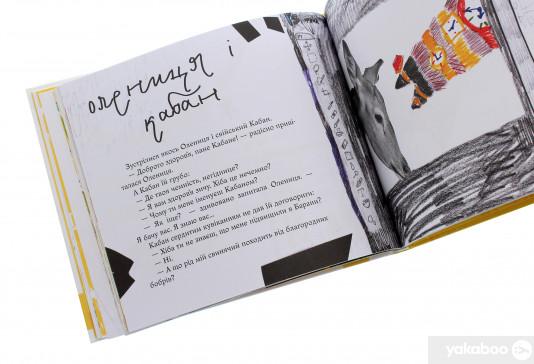 олениця і
кабан
Зустрілися якось Олениця і свійський Кабан.
— Доброго здоров'я, пане Кабане! — радісно приві-
талася Олениця.
А Кабан їй грубо:
— Де твоя чемність, негіднице?
— Я вам здоров'я зичу. Хіба це нечемно?
— Чому ти мене іменуєш Кабаном?
— Як іще? — здивовано запитала Олениця. —
Я бачу вас. Я знаю вас...
Кабан сердитим кувіканням не дав їй договорити:
— Хіба ти не знаєш, що мене підвищили в Барани?
— Ні.
— А що рід мій свинячий походить від благородних
бобрів?
yakaboo